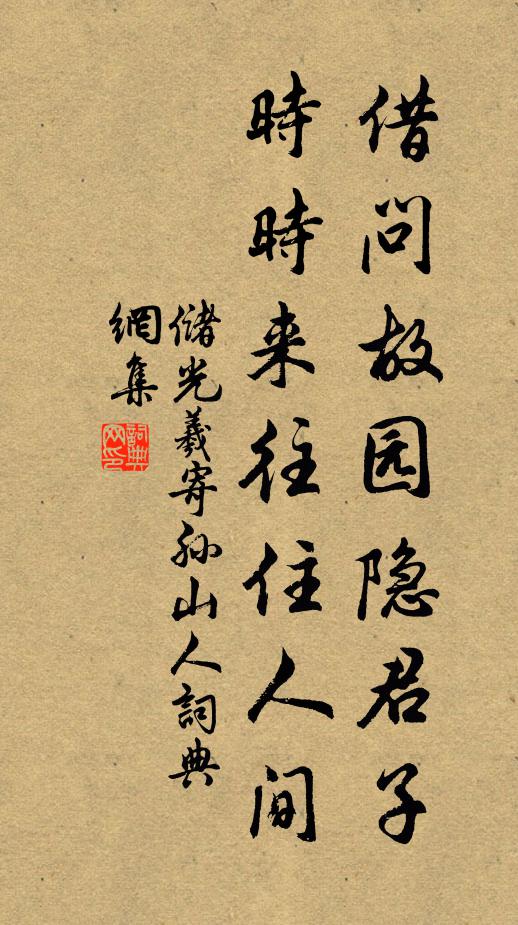 借问故园隐君子
時時来往住人间
储光羲寄孙山人詞典
網集
詞典网印